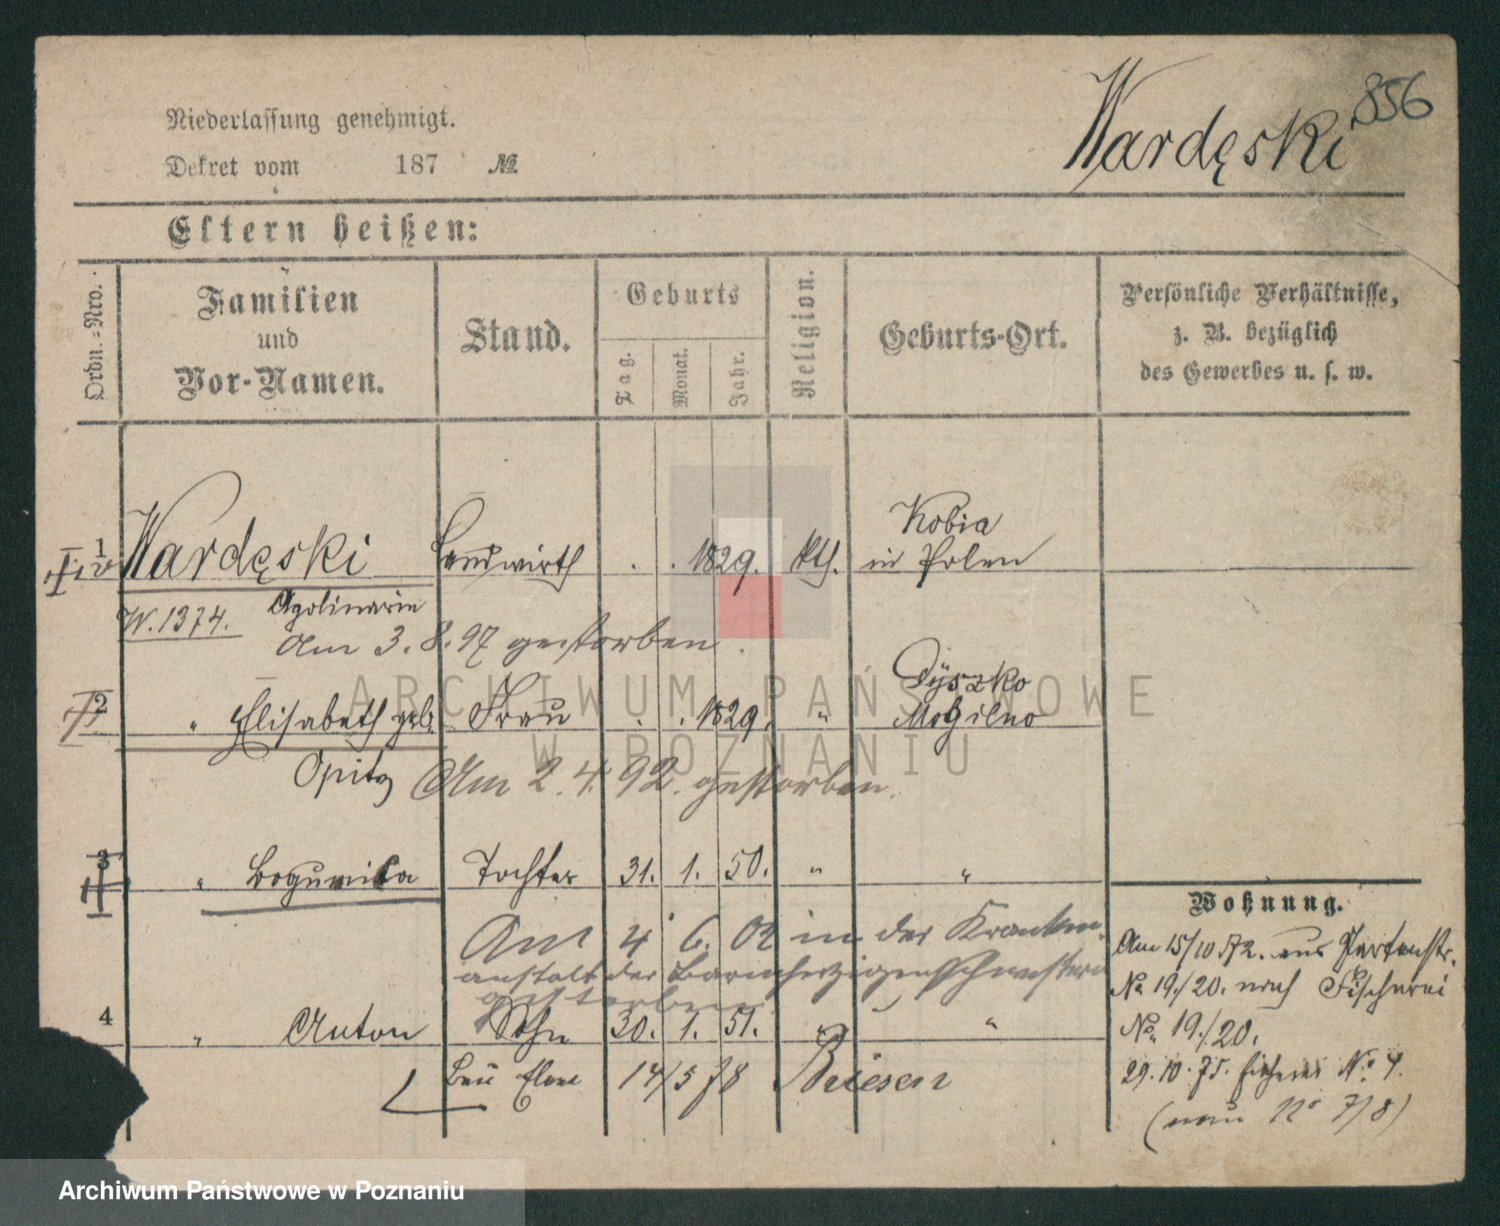 856
Wardęski
Niederlassung genehmigt.
Dekret vom 187 №
Eltern heißen:
Ordn.-Nro.
Familien
und
Vor-Namen.
Stand.
Geburts
Tag.
Monat.
Jahr.
Religion.
Geburts-Ort.
Persönliche Verhältnisse,
z. B. bezüglich
des Gewerbes u. s. w.
1 Wardęski Landwirth . . 1829. kth. Kobia
in Polen
W. 1374. Apolinarin
Am 3. 8. 97 gestorben.
2 " Elisabeth geb. Frau . . 1829. " Dÿszko
Mogilno
Opitz Am 2. 4. 92. gestorben.
3 " Bogumila Tochter 31. 1. 50. " "
Am 4 6. 02 in der Kranken-
anstalt der Barmherzigen Schwestern
gestorben
4 " Anton Sohn 30. 1. 51. " "
14/5 78 Briesen
Wohnung.
Am 15/10 72. aus Gartenstr.
No 19./20. nach Fischerei
No. 19./20.
29. 10. 75. Fischerei No 4.
(neu No 7/8)
ARCHIWUM PAŃSTWOWE
W POZNANIU
Archiwum Państwowe w Poznaniu